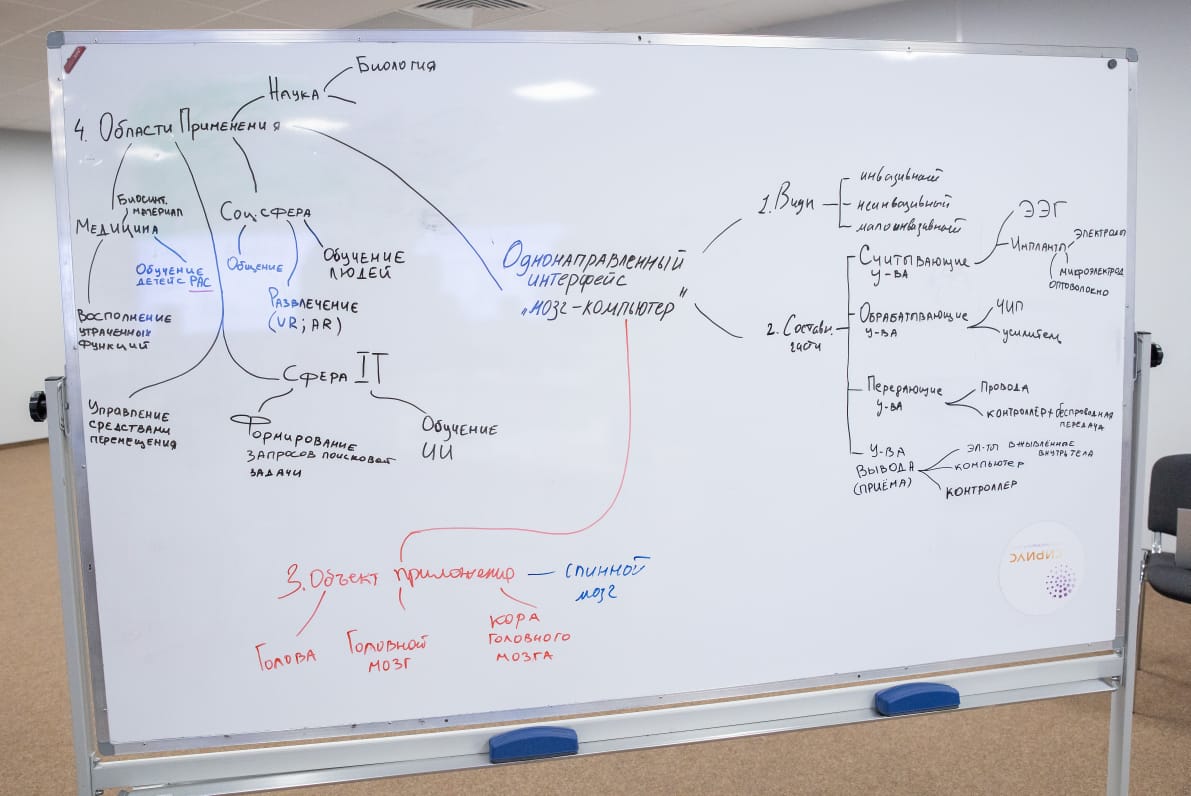 4. Области Применения
Наука
Биология
Медицина
Биосинт.
материал
Обучение
детей с РАС
Восполнение
утраченных
функций
Управление
средствами
перемещения
Соц. сфера
Общение
Развлечение
(VR; AR)
Обучение
людей
Сфера IT
Формирование
запросов поисковой
задачи
Обучение
ИИ
Однонаправленный
интерфейс
„мозг-компьютер"
1. Виды
инвазивный
неинвазивный
малоинвазивный
2. Составн.
части
Считывающие
у-ва
ЭЭГ
Импланты
электрод
микроэлектрод
оптоволокно
Обрабатывающие
у-ва
чип
усилитель
Передающие
у-ва
Провода
контроллер+беспроводная
передача
У-ва
вывода
(приёма)
эл-ты вживлённые
внутрь тела
компьютер
контроллер
3. Объект приложения
Голова
Головной
мозг
кора
головного
мозга
спинной
мозг
СИРИУС